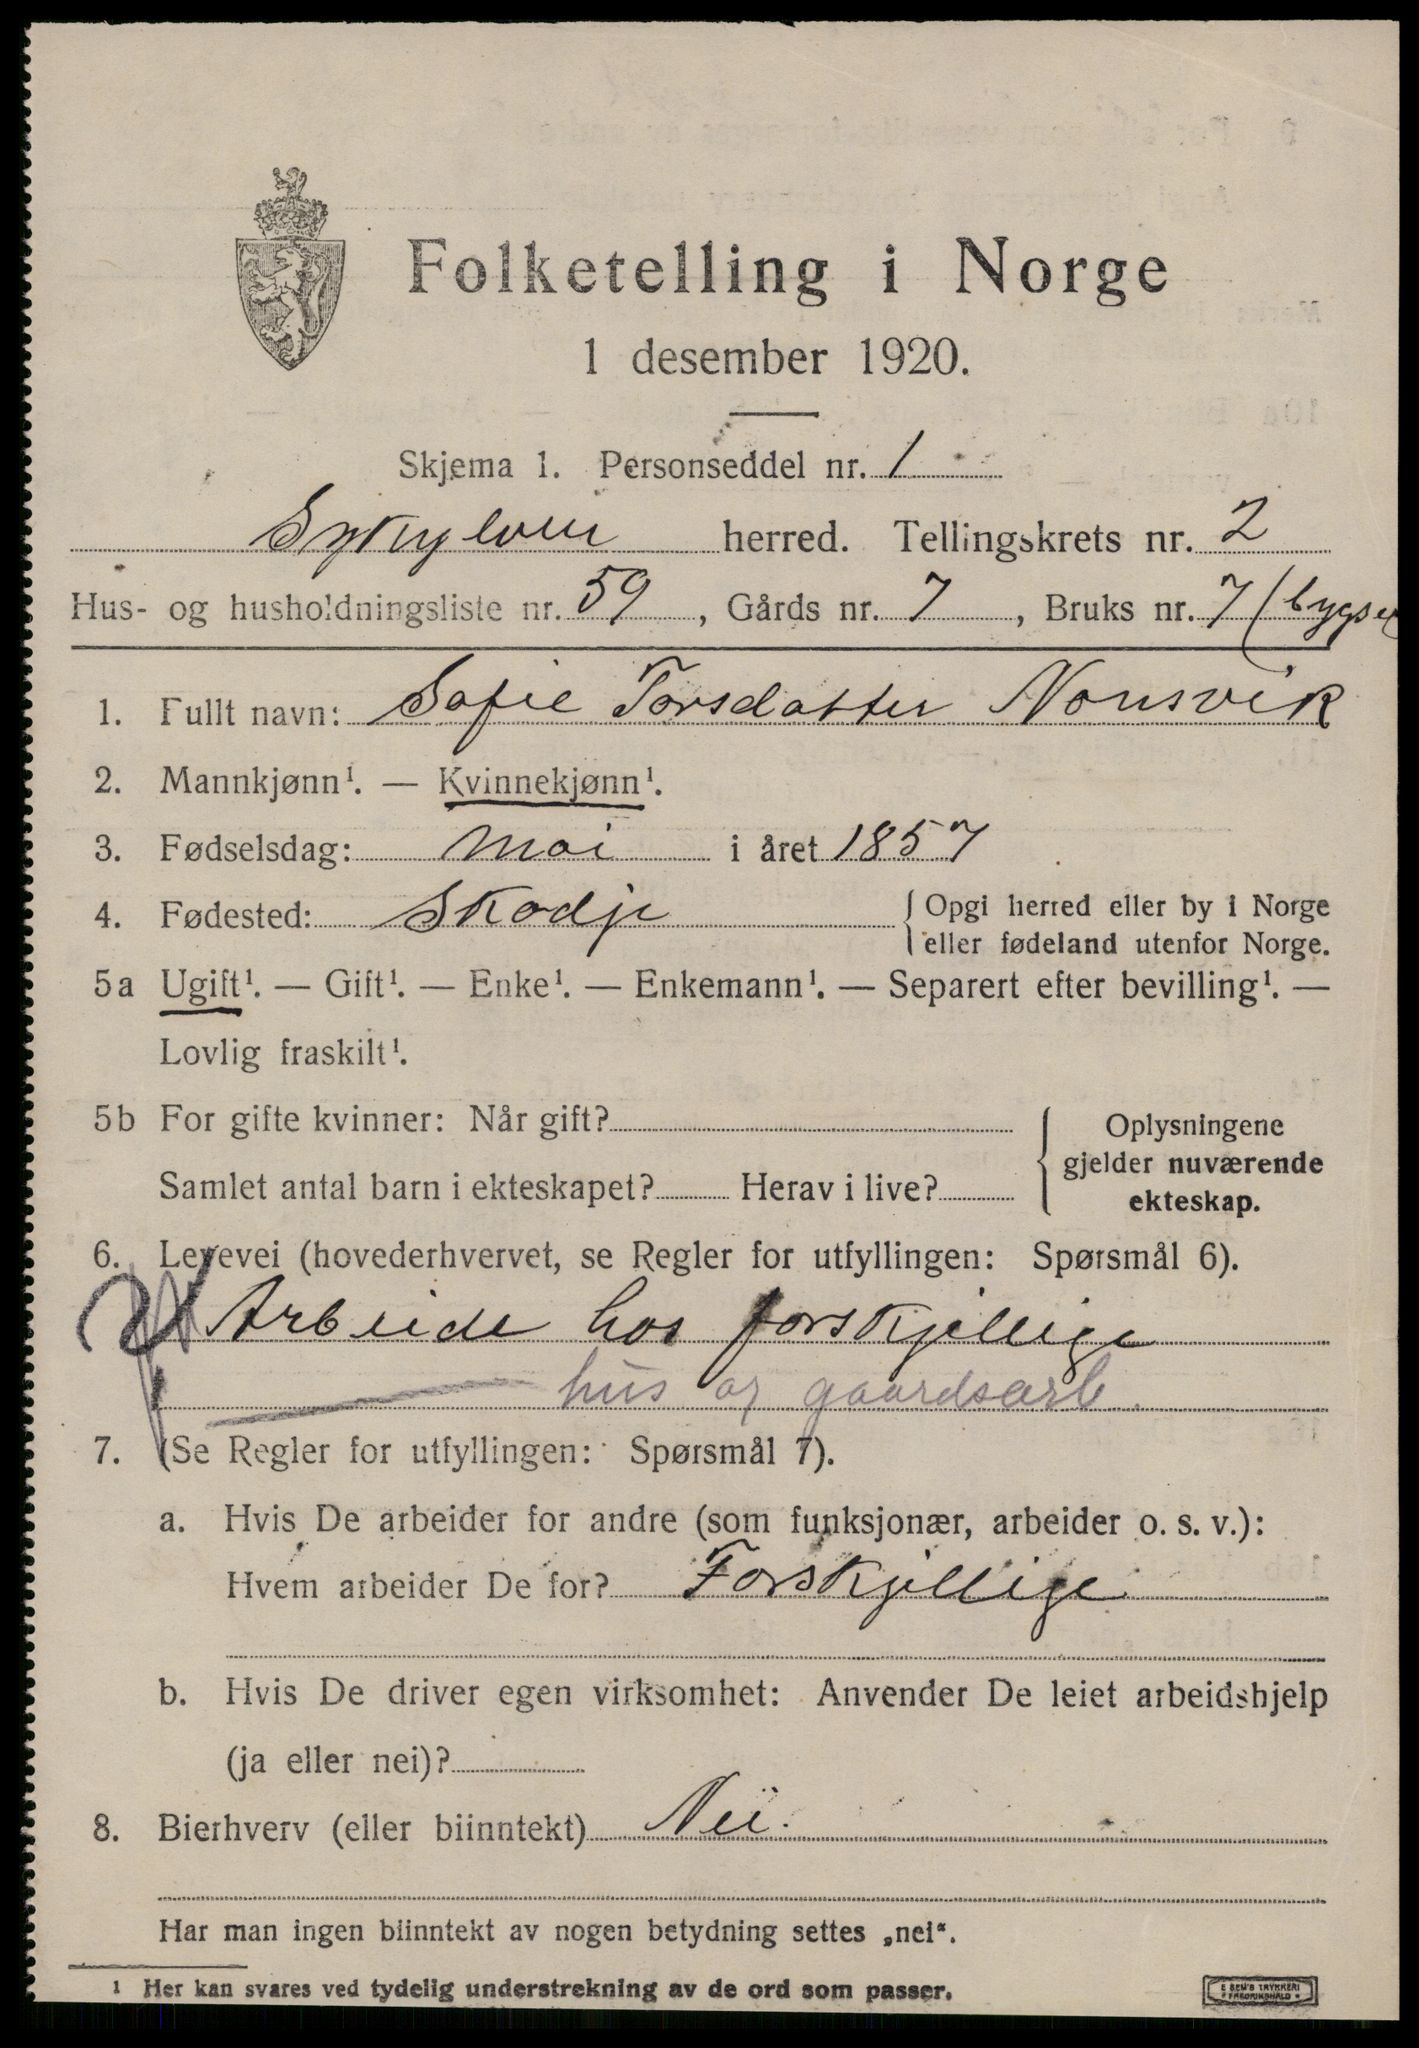 Folketelling i Norge
1 desember 1920.
Skjema 1. Personseddel nr. 1
Sykylven herred. Tellingskrets nr. 2
Hus- og husholdningsliste nr. 59, Gårds nr. 7, Bruks nr. 7 (bygsel
1. Fullt navn: Sofie Torsdatter Nonsvik
2. Mannkjønn¹. — Kvinnekjønn¹.
3. Fødselsdag: Mai i året 1857
4. Fødested: Skodje { Opgi herred eller by i Norge
eller fødeland utenfor Norge.
5a Ugift¹. — Gift¹. — Enke¹. — Enkemann¹. — Separert efter bevilling¹. —
Lovlig fraskilt¹.
5b For gifte kvinner: Når gift?
Samlet antal barn i ekteskapet? Herav i live?
{ Oplysningene
gjelder nuværende
ekteskap.
6. Levevei (hovederhvervet, se Regler for utfyllingen: Spørsmål 6).
Arbeide hos forskjellige
hus og gaardsarb.
7. (Se Regler for utfyllingen: Spørsmål 7).
a. Hvis De arbeider for andre (som funksjonær, arbeider o. s. v.):
Hvem arbeider De for? Forskjellige
b. Hvis De driver egen virksomhet: Anvender De leiet arbeidshjelp
(ja eller nei)?
8. Bierhverv (eller biinntekt) Nei.
Har man ingen biinntekt av nogen betydning settes „nei“.
¹ Her kan svares ved tydelig understrekning av de ord som passer.
E SEM'S TRYKKERI
FREDRIKSHALD